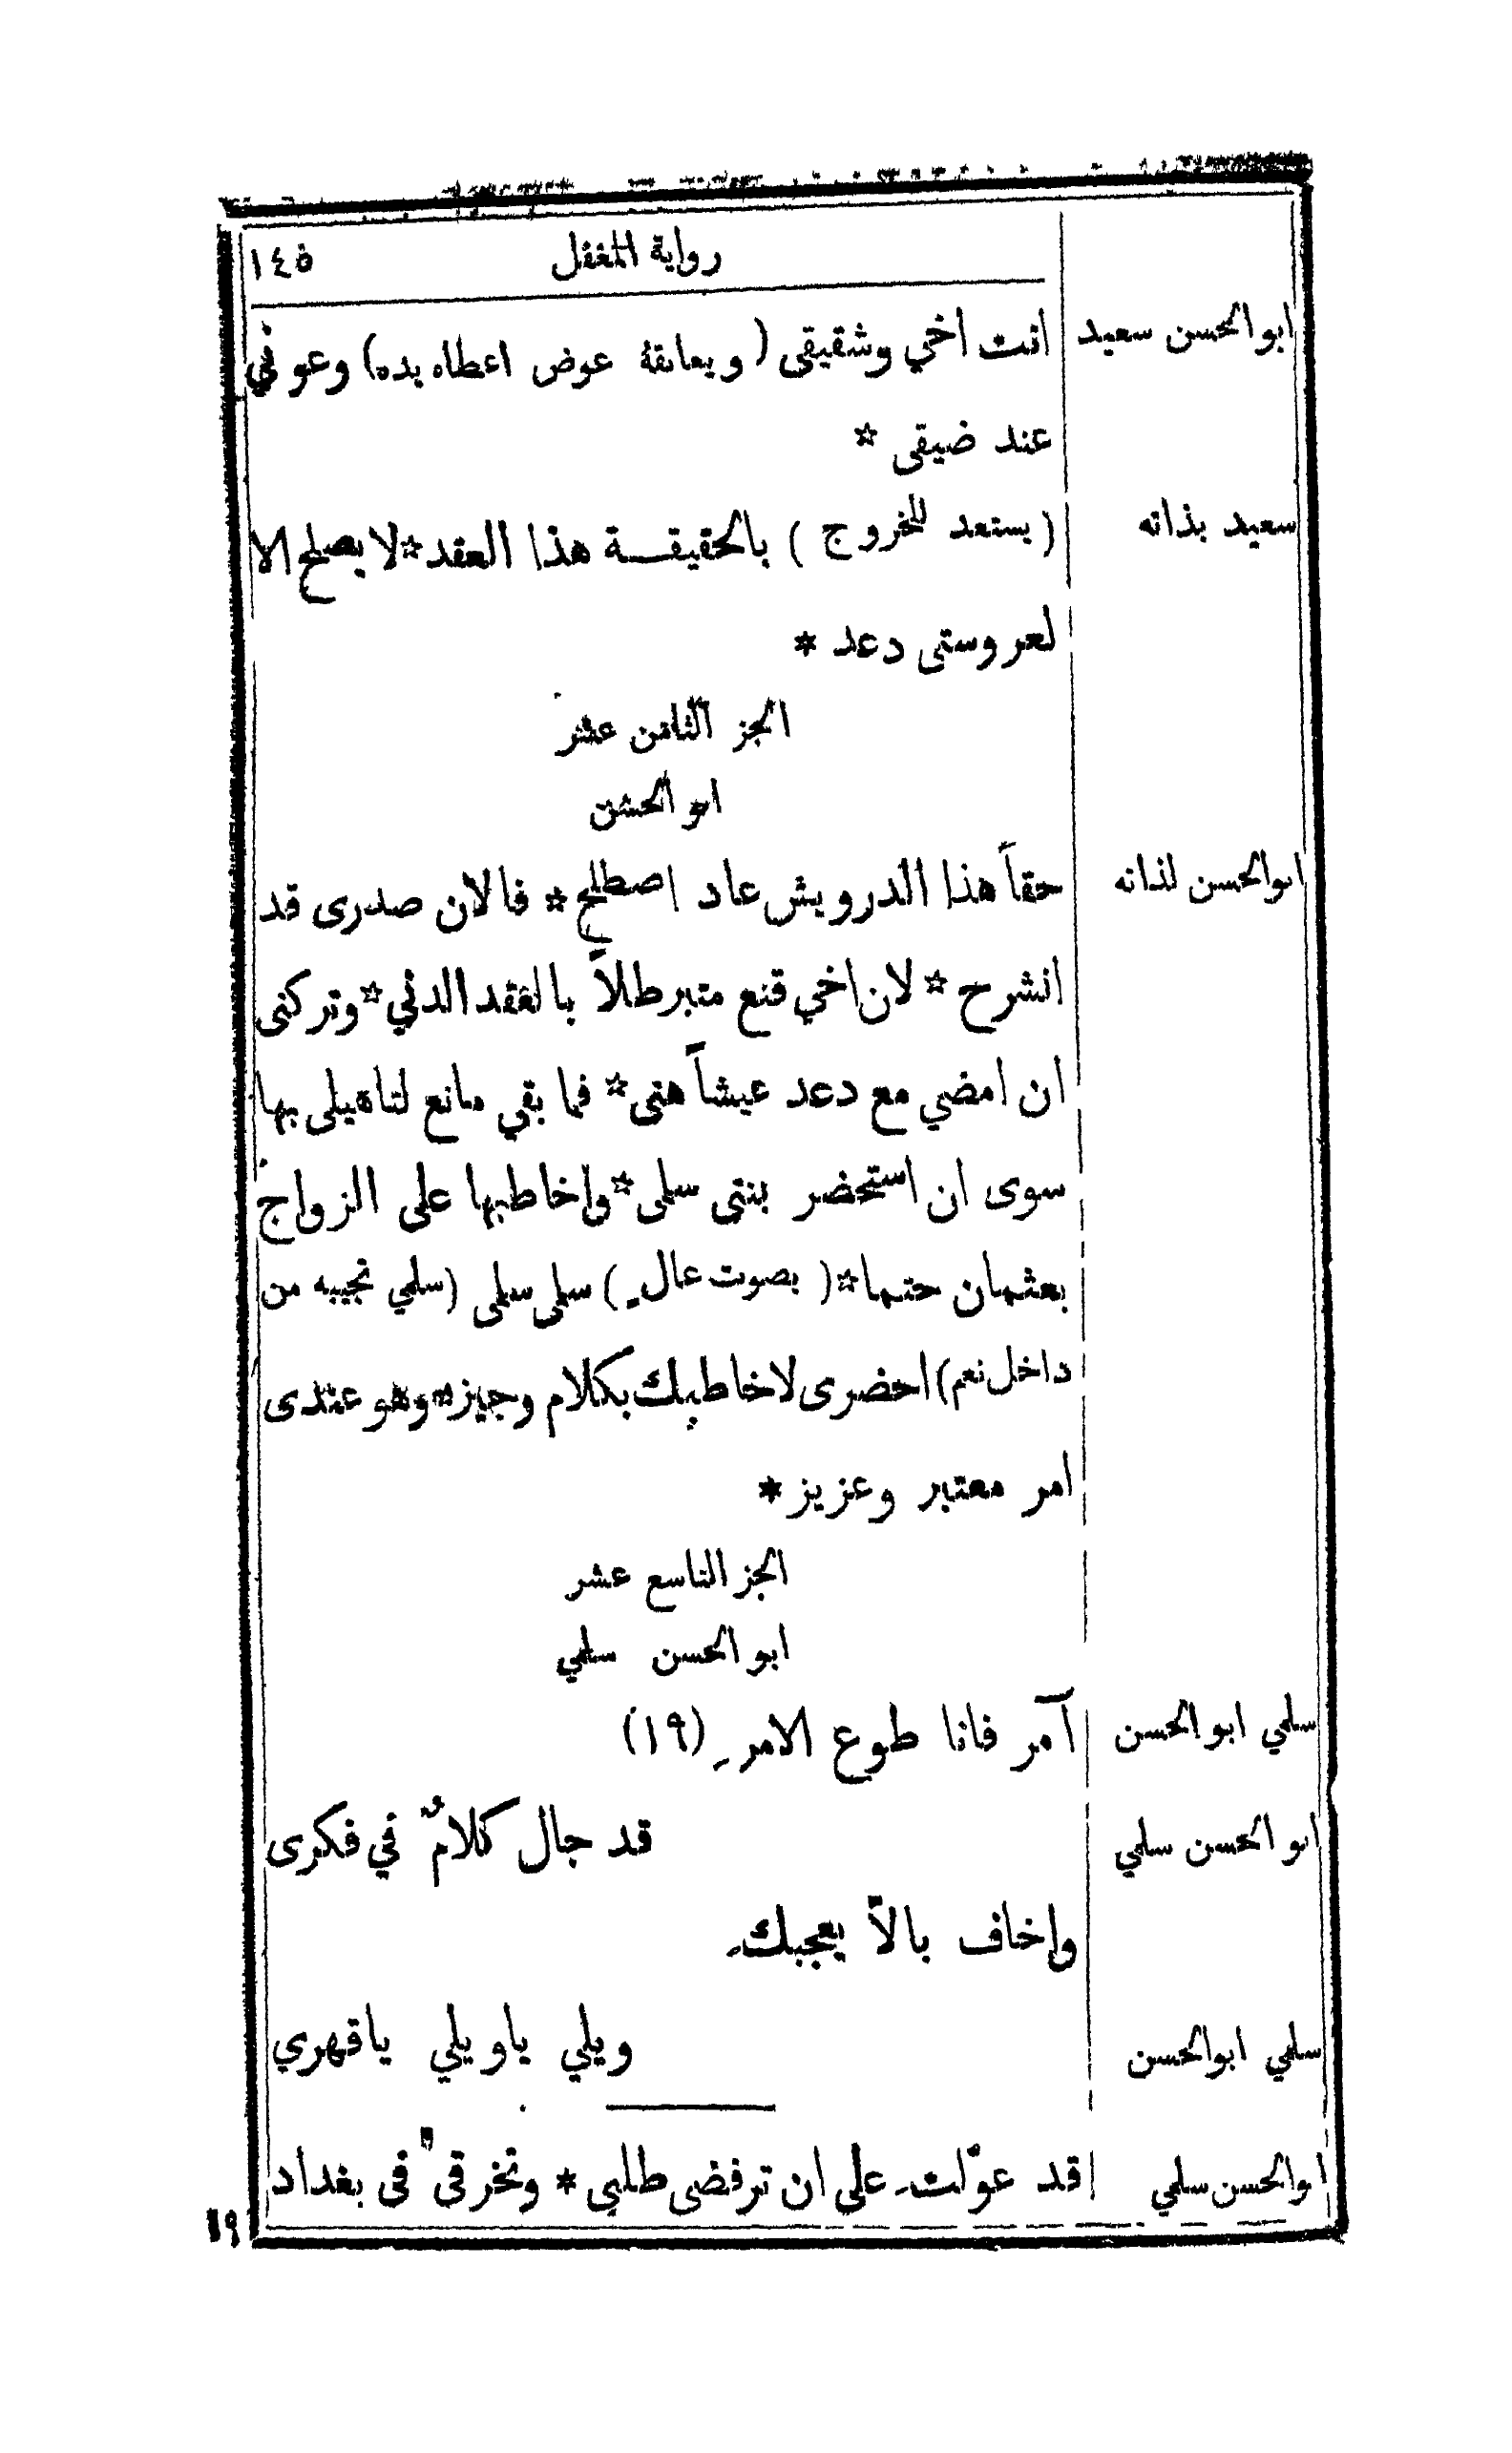 رواية المغفل ١٤٥
ابو الحسن سعيد انت اخي وشقيقى (ويعانقهُ عوض اعطاه يده) وعوني
عند ضيقى *
سعيد بذاته (يستعد للخروج) بالحقيقـة هذا العقد * لا يصلح الا
لعروستى دعد *
الجز الثامن عشر
ابو الحسن
ابو الحسن لذاته حقاً هذا الدرويش عاد اصطلح * فالان صدرى قد
انشرح * لان اخي قنع متبرطلاً بالعقد الدني * وتركنى
ان امضي مع دعد عيشاً هنى * فما بقي مانع لتاهيلى بها
سوى ان استحضر بنتى سلمى * واخاطبها على الزواج
بعثمان حتما * (بصوت عالٍ) سلمى سلمى (سلمي تجيبه من
داخل نعم) احضرى لاخاطبك بكلام وجيز * وهو عندى
امر معتبر وعزيز *
الجز التاسع عشر
ابو الحسن سلمي
سلمي ابو الحسن آمر فانا طوع الامرِ (١٩)
ابو الحسن سلمي قد جال كلامٌ في فكرى
واخاف بالاَّ يعجبكِ
سلمي ابو الحسن ويلي ياويلي ياقهري
ابو الحسن سلمي قد عوّلتِ على ان ترفضى طلبي * وتخرقى فى بغداد
١٩